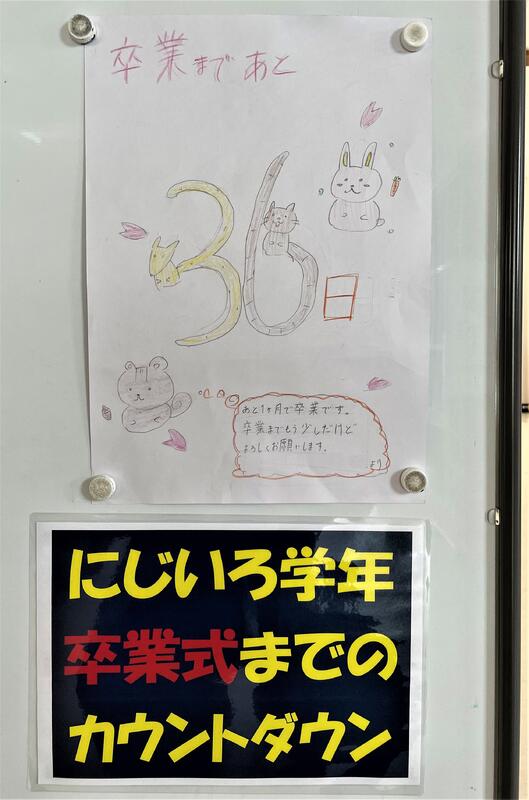 卒業まであと
36
日
あと1ヶ月で卒業です。
卒業までもう少しだけど
よろしくお願いします。
より
にじいろ学年
卒業式までの
カウントダウン